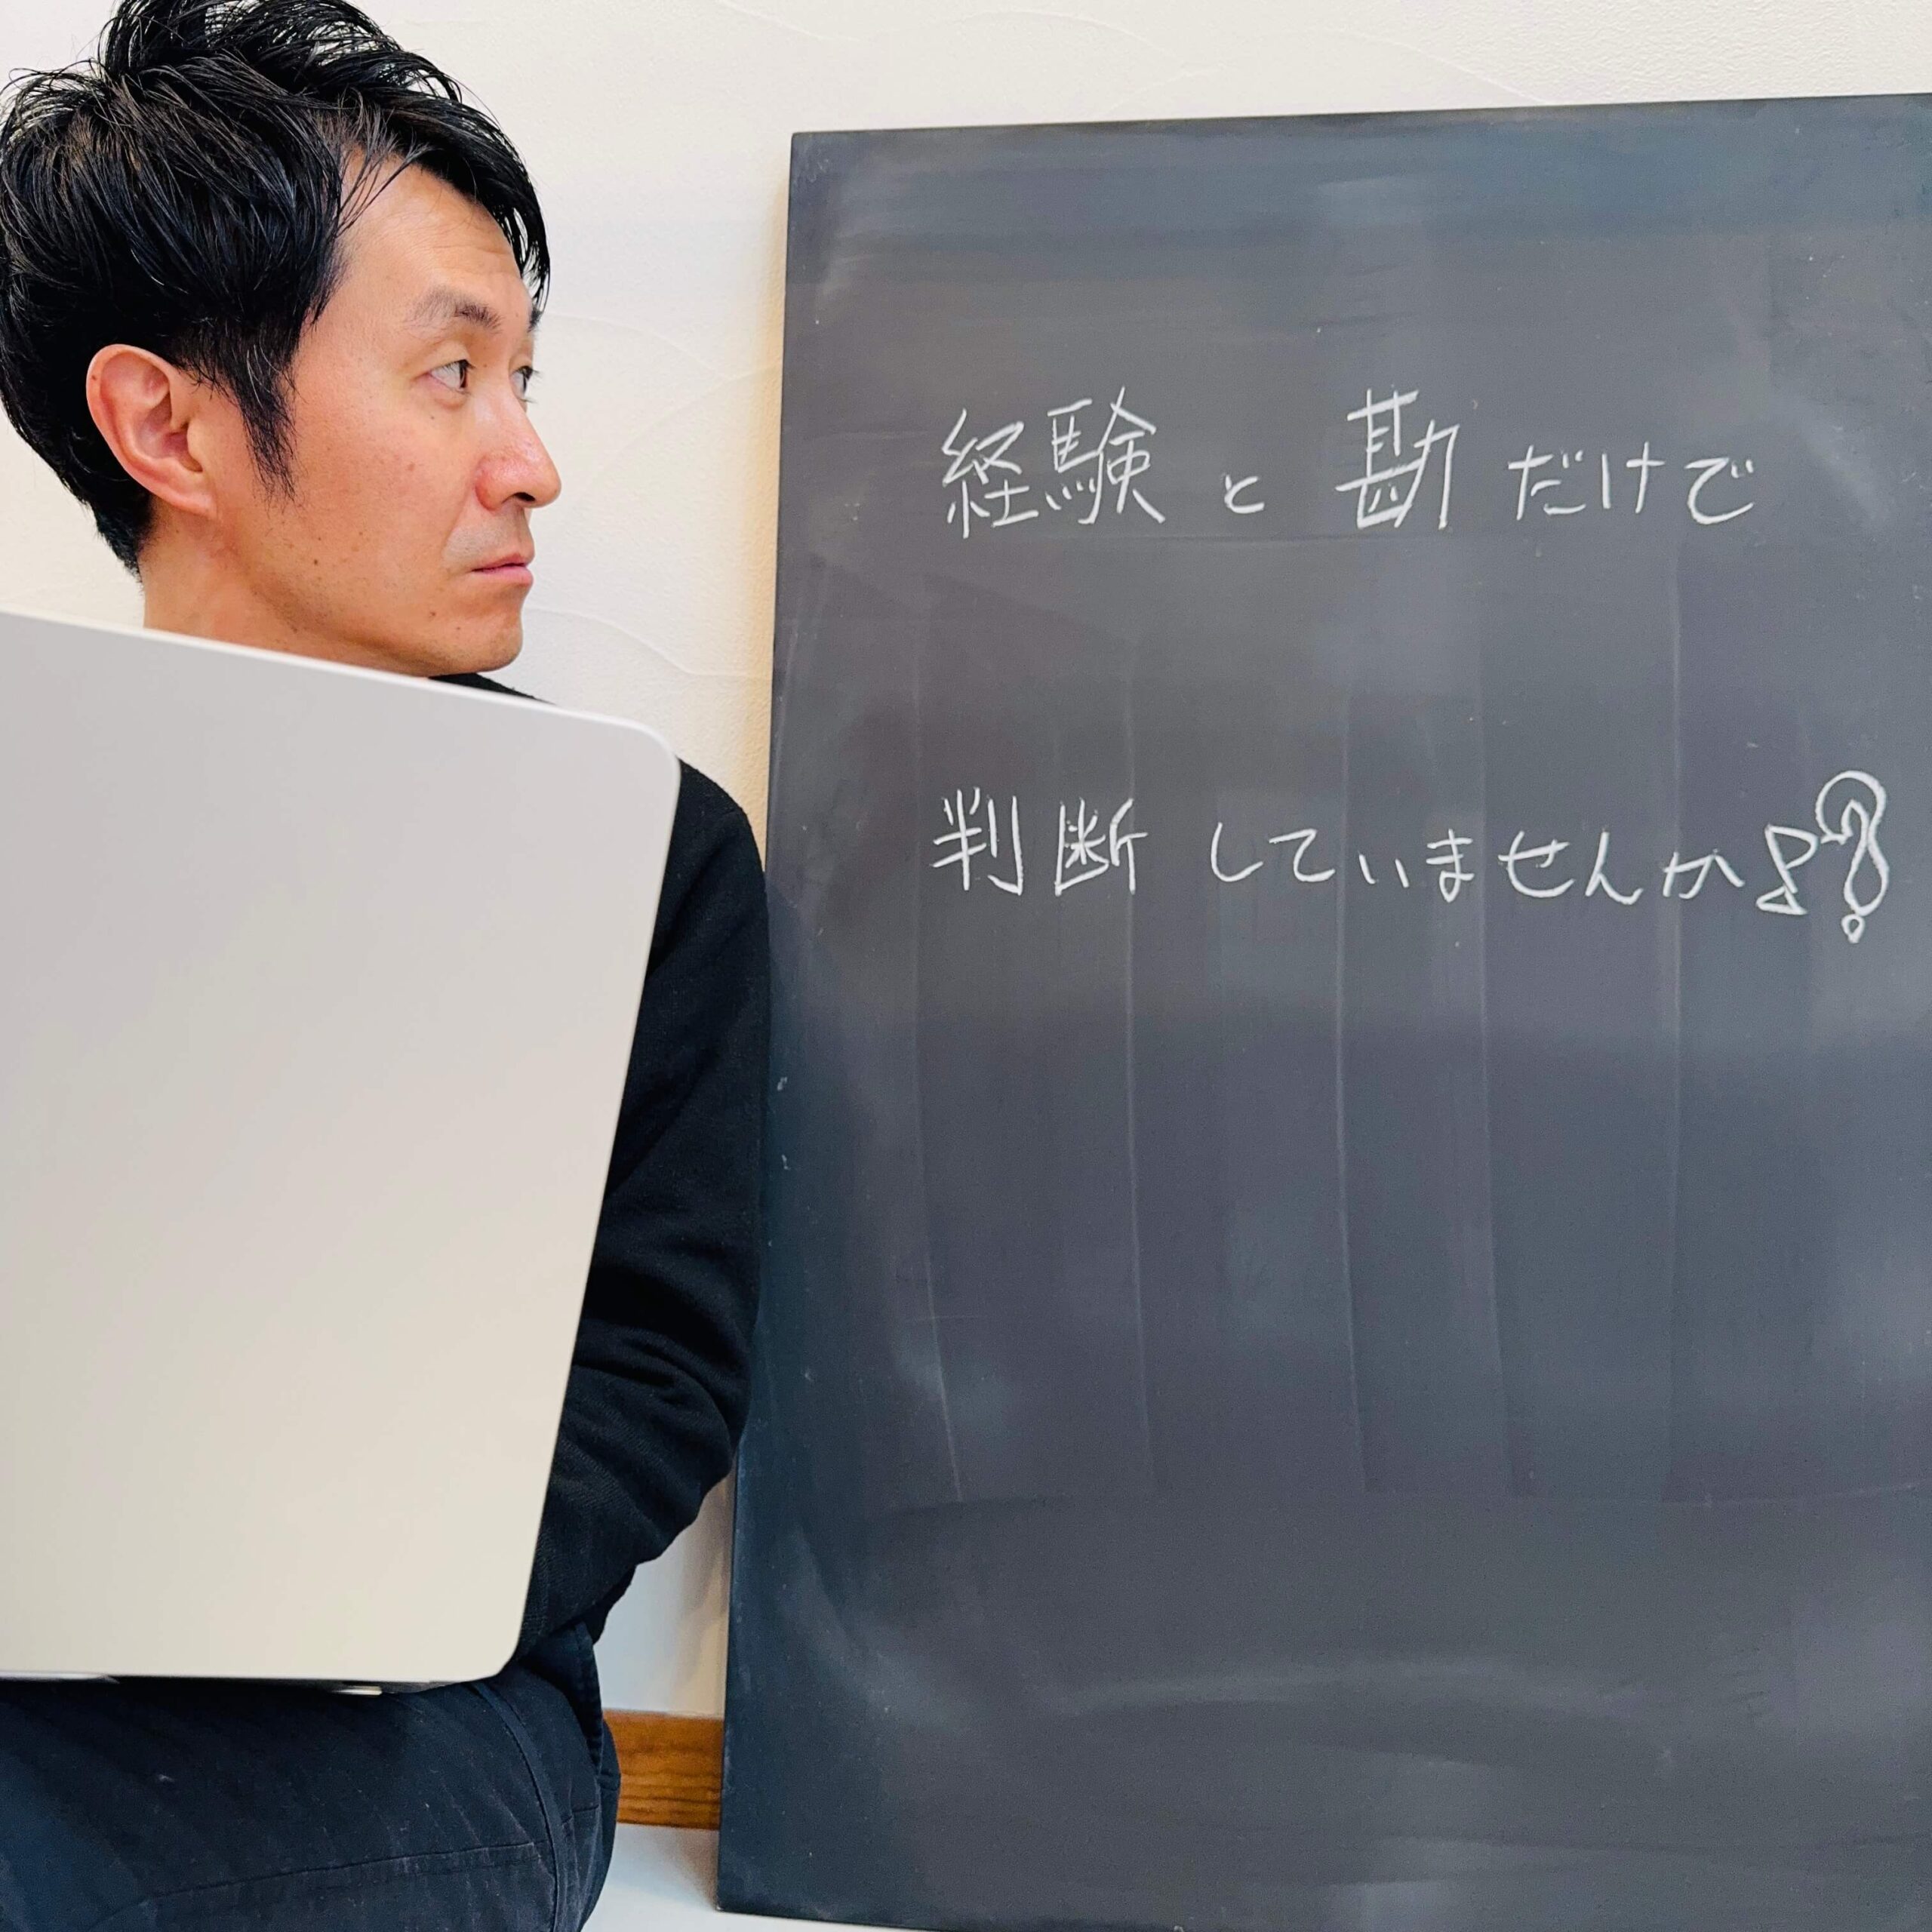 経験と勘だけで
判断していませんか??